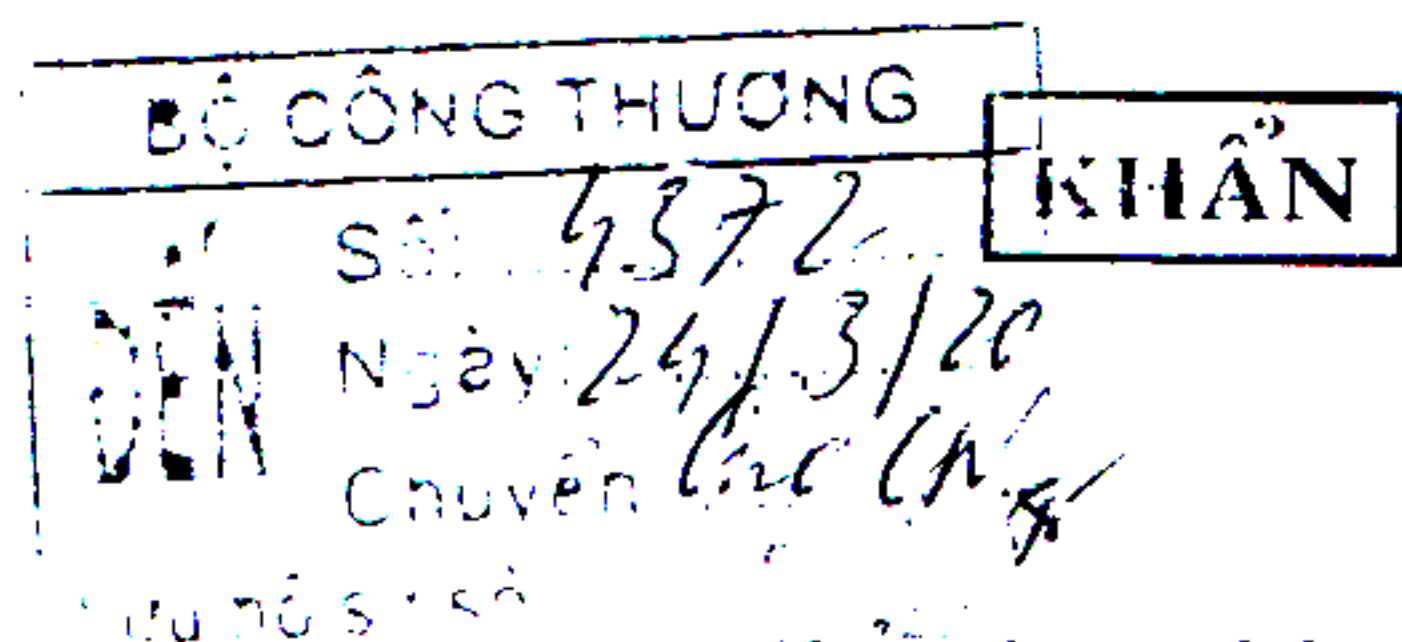 BỘ CÔNG THƯƠNG
KHẨN
ĐẾN
Số: 4372
Ngày: 24/3/20
Chuyển: Cục CN
Lưu hồ sơ số